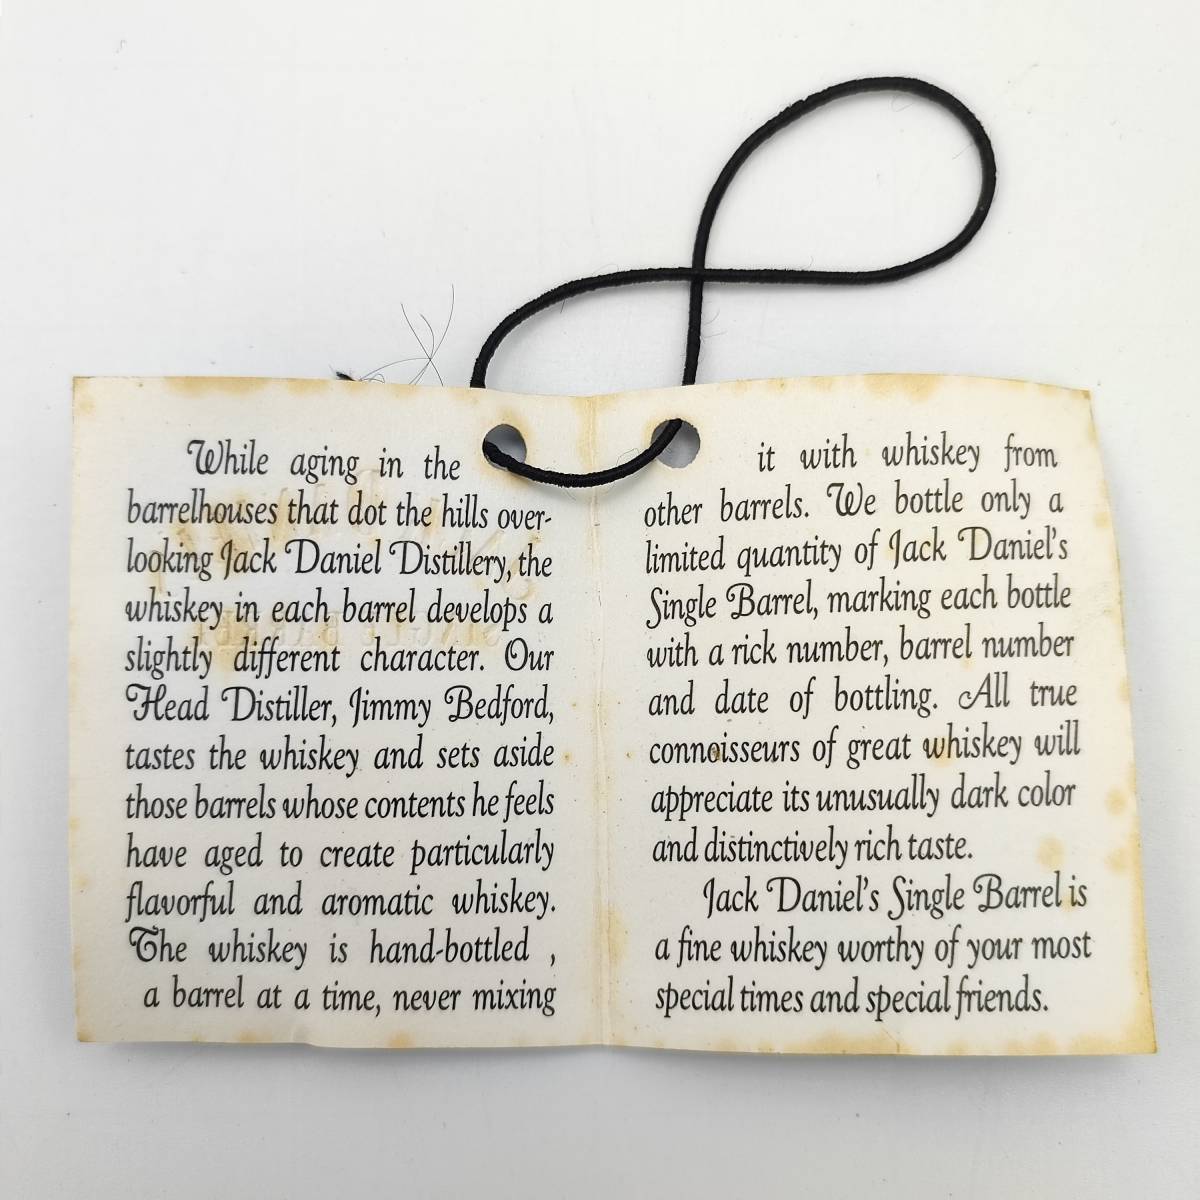 While aging in the
barrelhouses that dot the hills over-
looking Jack Daniel Distillery, the
whiskey in each barrel develops a
slightly different character. Our
Head Distiller, Jimmy Bedford,
tastes the whiskey and sets aside
those barrels whose contents he feels
have aged to create particularly
flavorful and aromatic whiskey.
The whiskey is hand-bottled ,
a barrel at a time, never mixing
it with whiskey from
other barrels. We bottle only a
limited quantity of Jack Daniel's
Single Barrel, marking each bottle
with a rick number, barrel number
and date of bottling. All true
connoisseurs of great whiskey will
appreciate its unusually dark color
and distinctively rich taste.
Jack Daniel's Single Barrel is
a fine whiskey worthy of your most
special times and special friends.